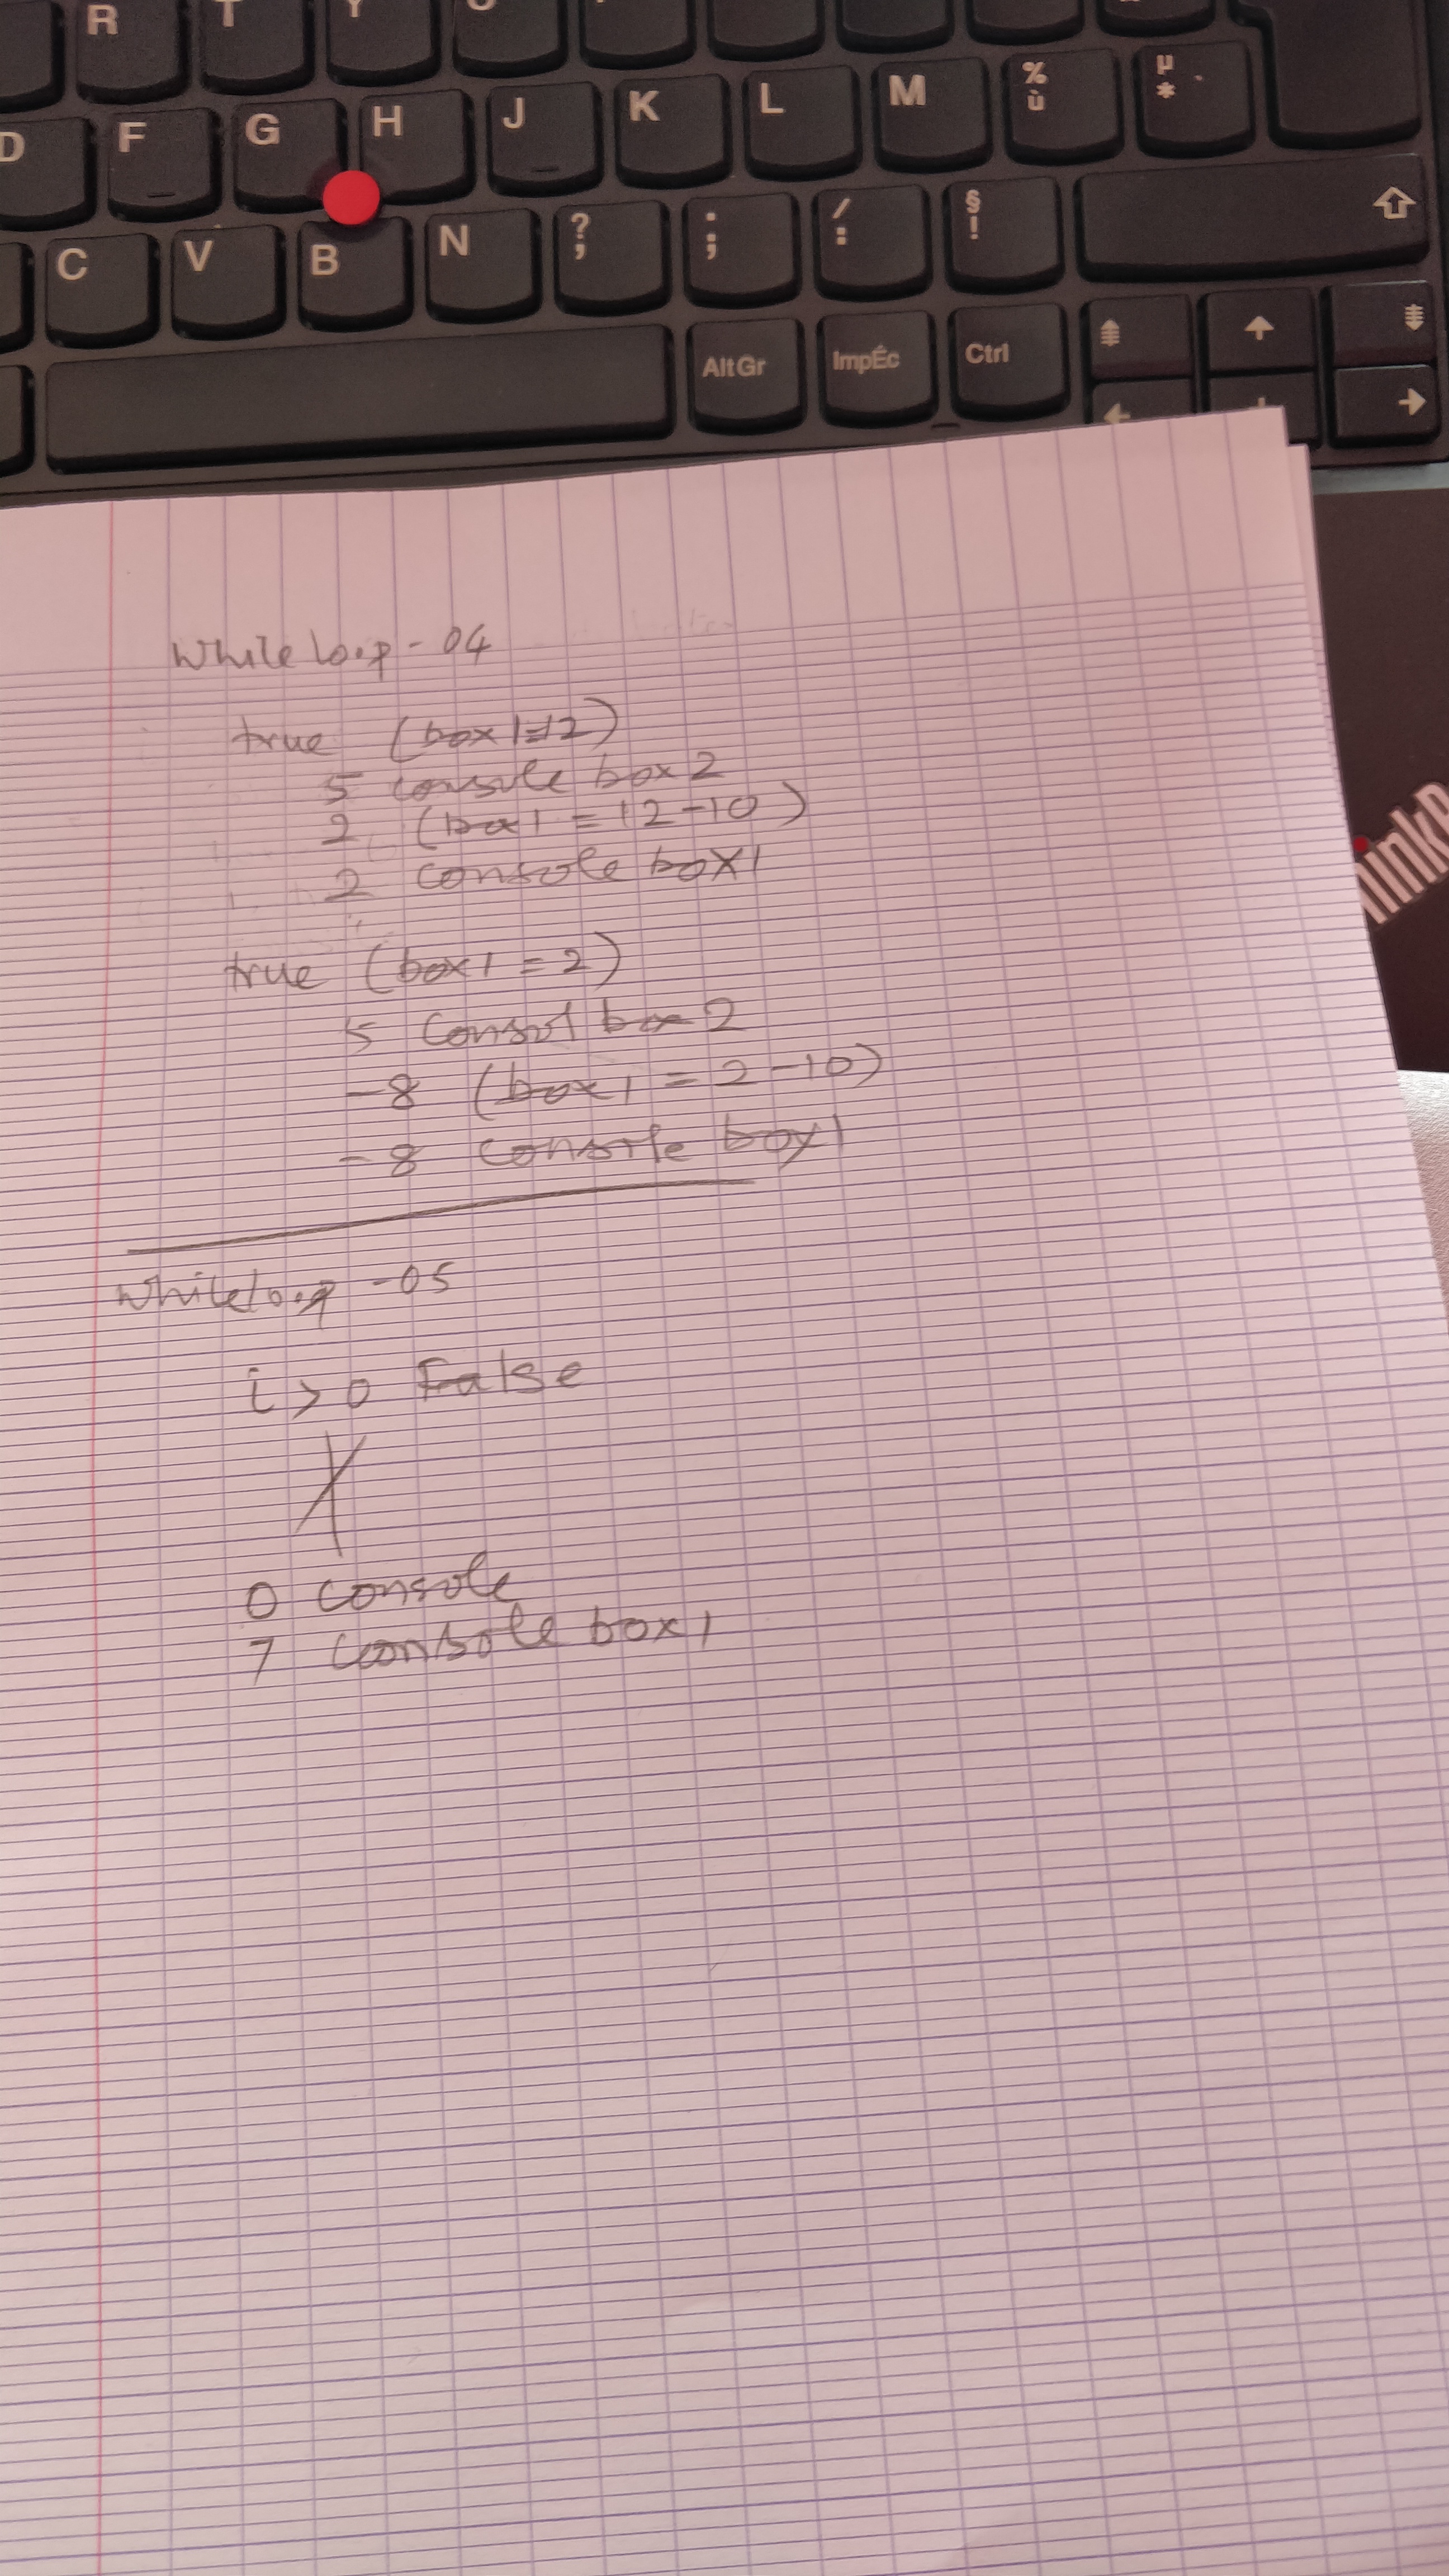 R T Y U
D F G H J K L M % ù µ *
C V B N ? , . ; / : § !
AltGr ImpÉc Ctrl
While loop - 04
true (box1=12)
5 console box2
2 (box1 = 12-10)
2 console box1
true (box1 = 2)
5 Consol box2
-8 (box1 = 2-10)
-8 console box1
While loop - 05
i > 0 False
0 console
7 console box1